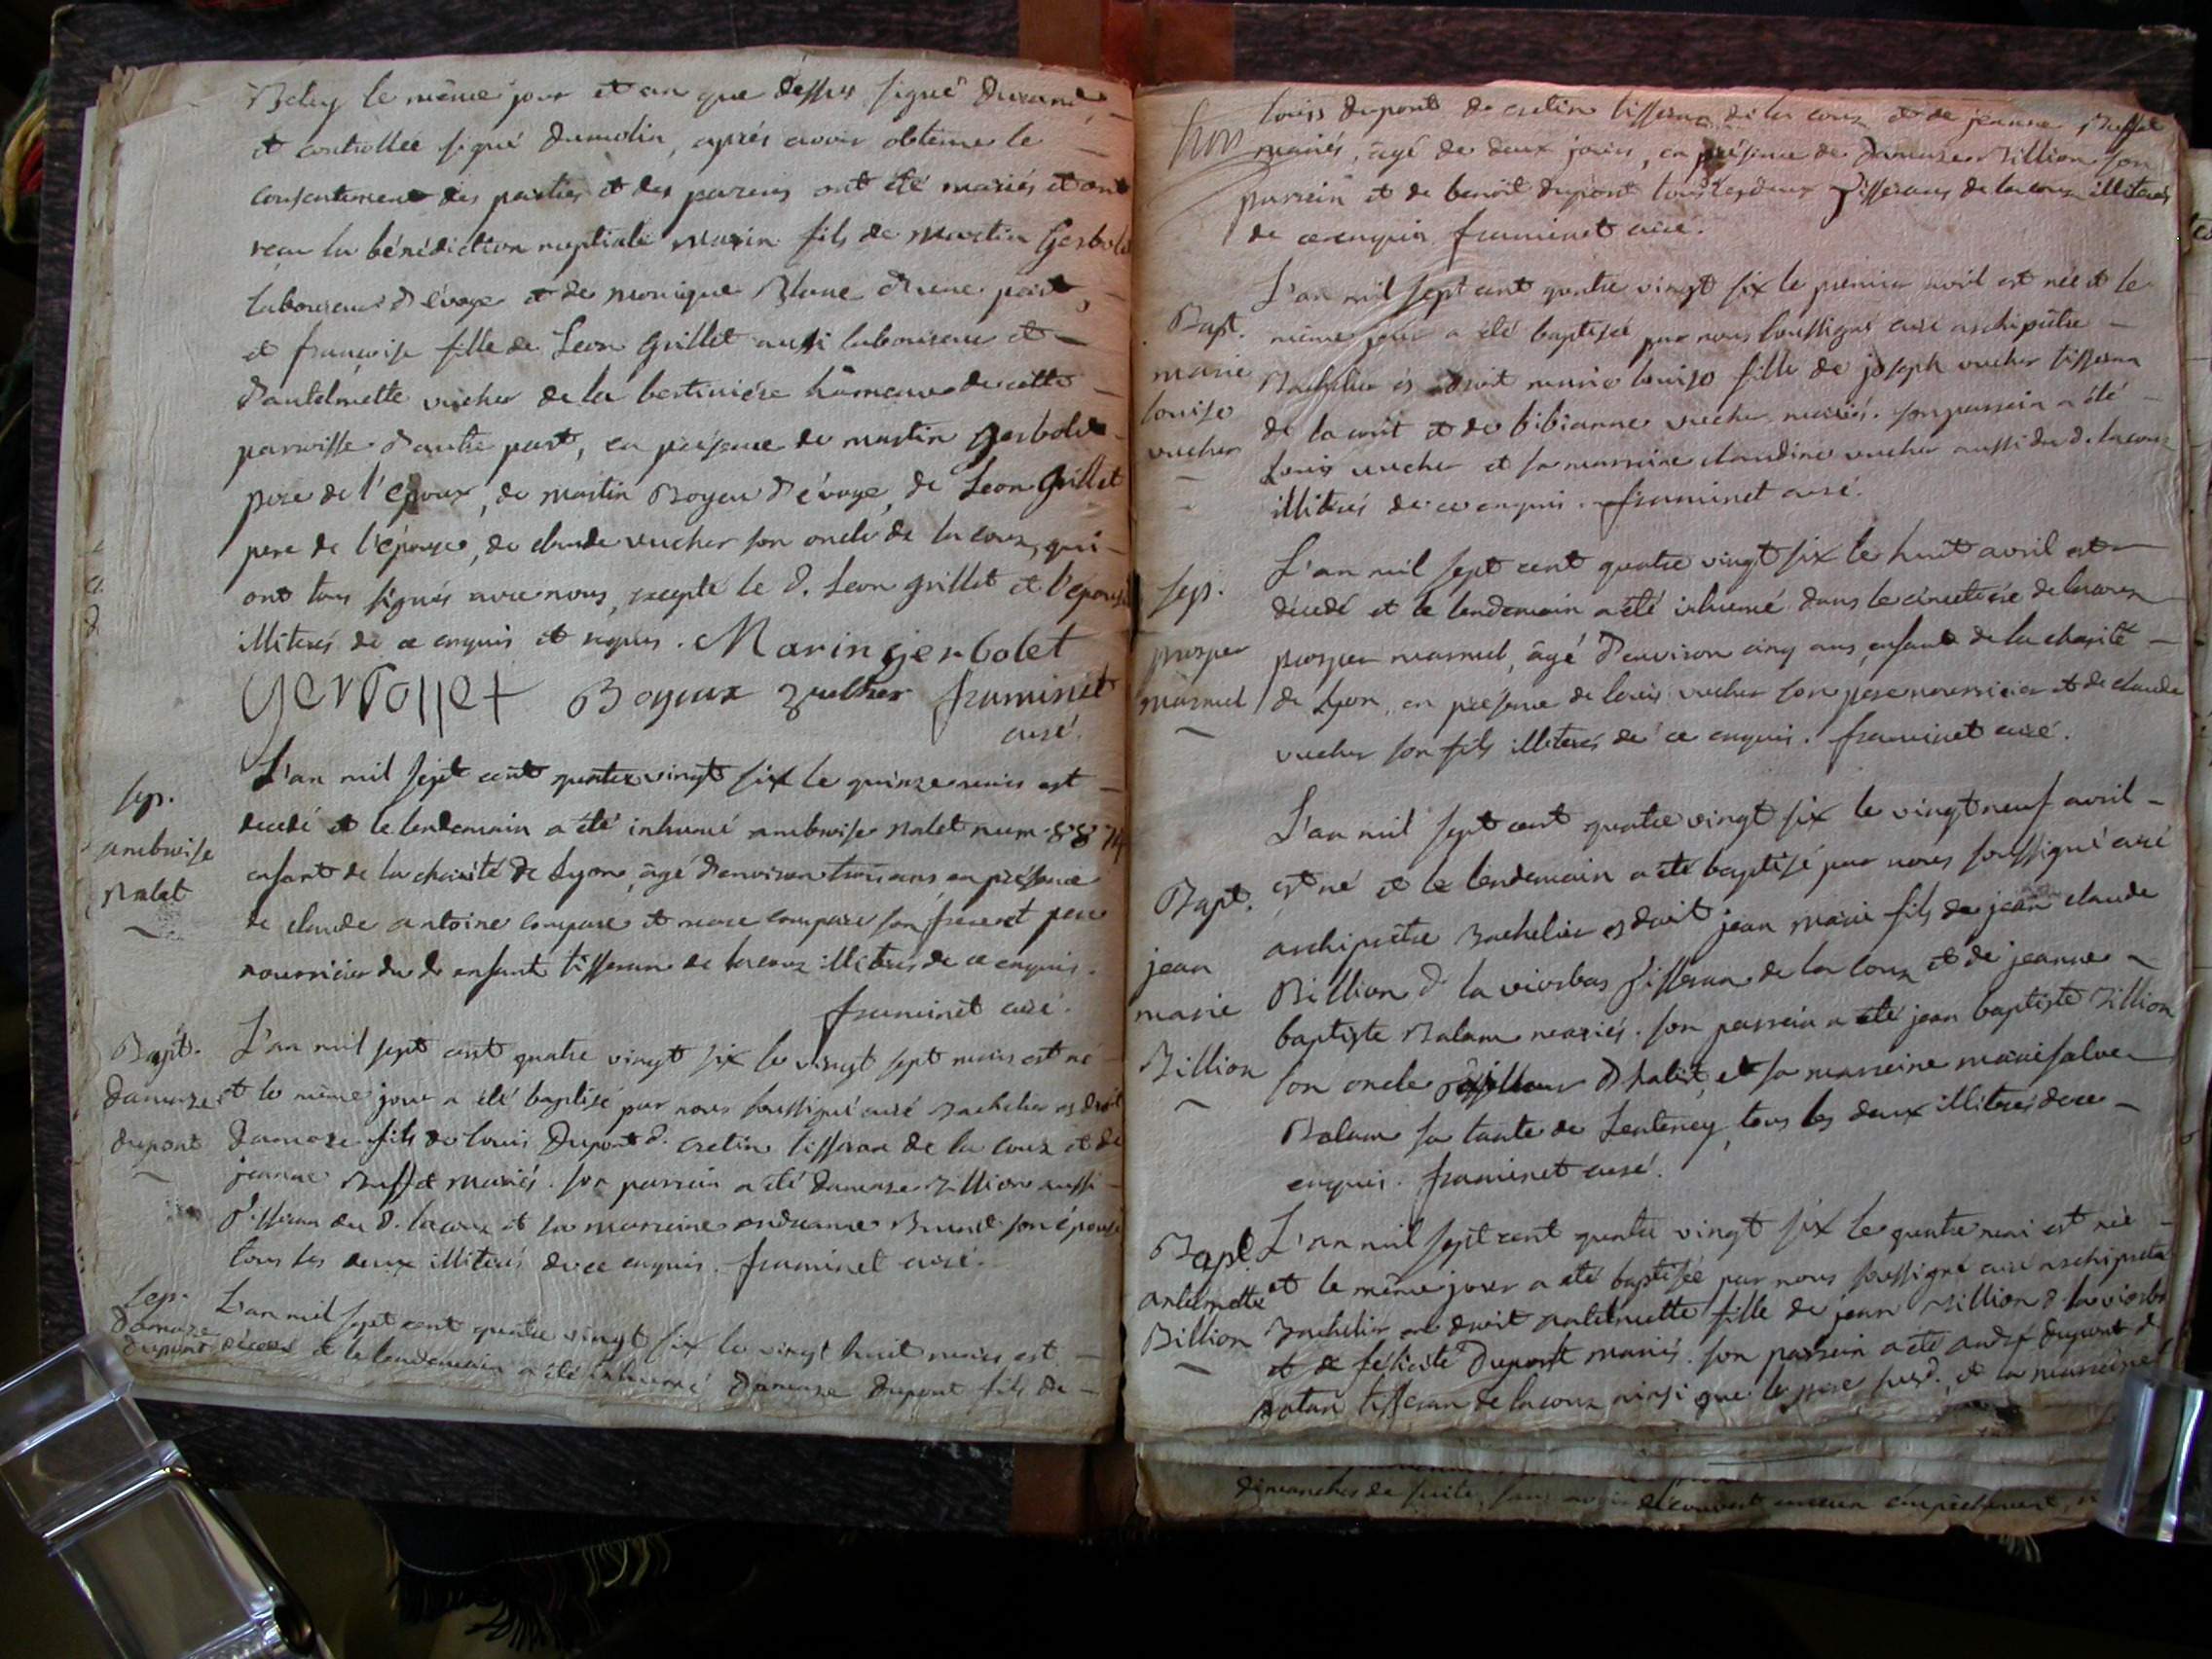 Beley le même jour et an que dessus signé Durand
et controllée signé Dumolin, aprés avoir obtenu le
consentement des parties et des parens ont été mariés et ont
recu la bénédiction nuptiale marin fils de martin Gerbolet
laboureur d'évoge et de monique Blanc d'une part,
et francoise fille de Leon Grillet aussi laboureur et
d'antelmette vucher de la bertiniére hâmeau de cette
parroisse d'autre part, en présence de martin gerbolet
pere de l'époux, de martin Boyeu d'évoge, de Leon Grillet
pere de l'épouse, de claude vucher son oncle de lacoux, qui
ont tous signés avec nous, excepté le d. Leon grillet et l'épouse
illiterés de ce enquis et requis. Marin gerbolet
gerbollet Boyeux vulher framinet
curé.
sep.
ambroise
nalet
L'an mil sept cent quatre vingt six le quinze mars est
decedé et le lendemain a été inhumé ambroise nalet num.
enfant de la charité de Lyon, âgé d'environ trois ans, en présence
de claude antoine compare et compare son frere et pere
nourricier du d. enfant tisseran de lacoux illiterés de ce enquis.
framinet curé.
Bapt.
damaze
dupont
L'an mil sept cent quatre vingt six le vingt sept mars est né
et le même jour a été baptisé par nous soussigné curé Bachelier es droit
damaze fils de louis Dupont d. cretin tisseran de la coux et de
jeanne Buffet mariés. son parrein a été damaze Billion aussi
tisseran du d. lacoux et sa marreine Brunet son épouse
tous les deux illiterés de ce enquis. framinet curé.
sep.
damaze
dupont
L'an mil sept cent quatre vingt six le vingt huit mars est
décédé et le lendemain a été inhumé Damaze dupont fils de
louis dupont de cretin tisseran de la coux et de jeanne Buffet
mariés, âgé de deux jours, en présence de Damaze Billion son
parrein et de benoit dupont tous les deux tisserans de lacoux illiterés
de ce enquis framinet curé.
Bapt.
marie
louise
vucher
L'an mil sept cent quatre vingt six le premier avril est née et le
même jour a été baptisée par nous soussigné curé archiprêtre
Bachelier és droit marie louise fille de joseph vucher tisseran
de la coux et de bibianne vucher mariés. son parrein a été
Louis vucher et sa marreine claudine vucher aussi du d. lacoux
illiterés de ce enquis. framinet curé.
sep.
prosper
marmel
L'an mil sept cent quatre vingt six le huit avril est
décedé et le lendemain a été inhumé dans le cimetiere de lacoux
prosper marmel, âgé d'environ cinq ans, enfant de la charité
de Lyon, en présence de louis vucher son pere nourricier et de claude
vucher son fils illiterés de ce enquis. framinet curé.
Bapt.
jean
marie
Billion
L'an mil sept cent quatre vingt six le vingt neuf avril
est né et le lendemain a été baptisé par nous soussigné curé
archiprêtre Bachelier es droit jean marie fils de jean claude
Billion d. la viorbas tisseran de la coux et de jeanne
baptiste Balam mariés. son parrein a été jean baptiste Billion
son oncle tailleur d'habit, et sa marreine marie
Balam sa tante de Lenteney, tous les deux illiterés de ce
enquis. framinet curé.
Bapt.
antelmette
Billion
L'an mil sept cent quatre vingt six le quatre mai est née
et le même jour a été baptisée par nous soussigné curé archiprêtre
Bachelier en droit antelmette fille de jean Billion d. la viorba
et de félicité Dupont mariés. son parrein a été dupont d.
tisseran de lacoux ainsi que le pere susd., et la marreine
dimanches de suite, sans avoir découvert aucun empêchement,